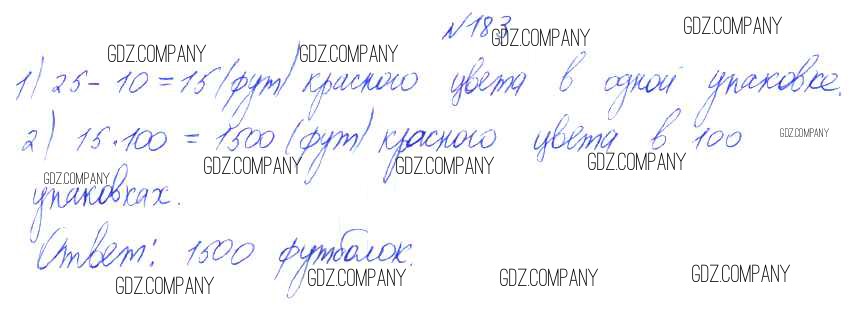 №183
1) 25 - 10 = 15 (фут) красного цвета в одной упаковке.
2) 15·100 = 1500 (фут) красного цвета в 100
упаковках.
Ответ: 1500 футболок.
GDZ.COMPANY GDZ.COMPANY GDZ.COMPANY GDZ.COMPANY
GDZ.COMPANY GDZ.COMPANY GDZ.COMPANY GDZ.COMPANY
GDZ.COMPANY
GDZ.COMPANY GDZ.COMPANY GDZ.COMPANY GDZ.COMPANY